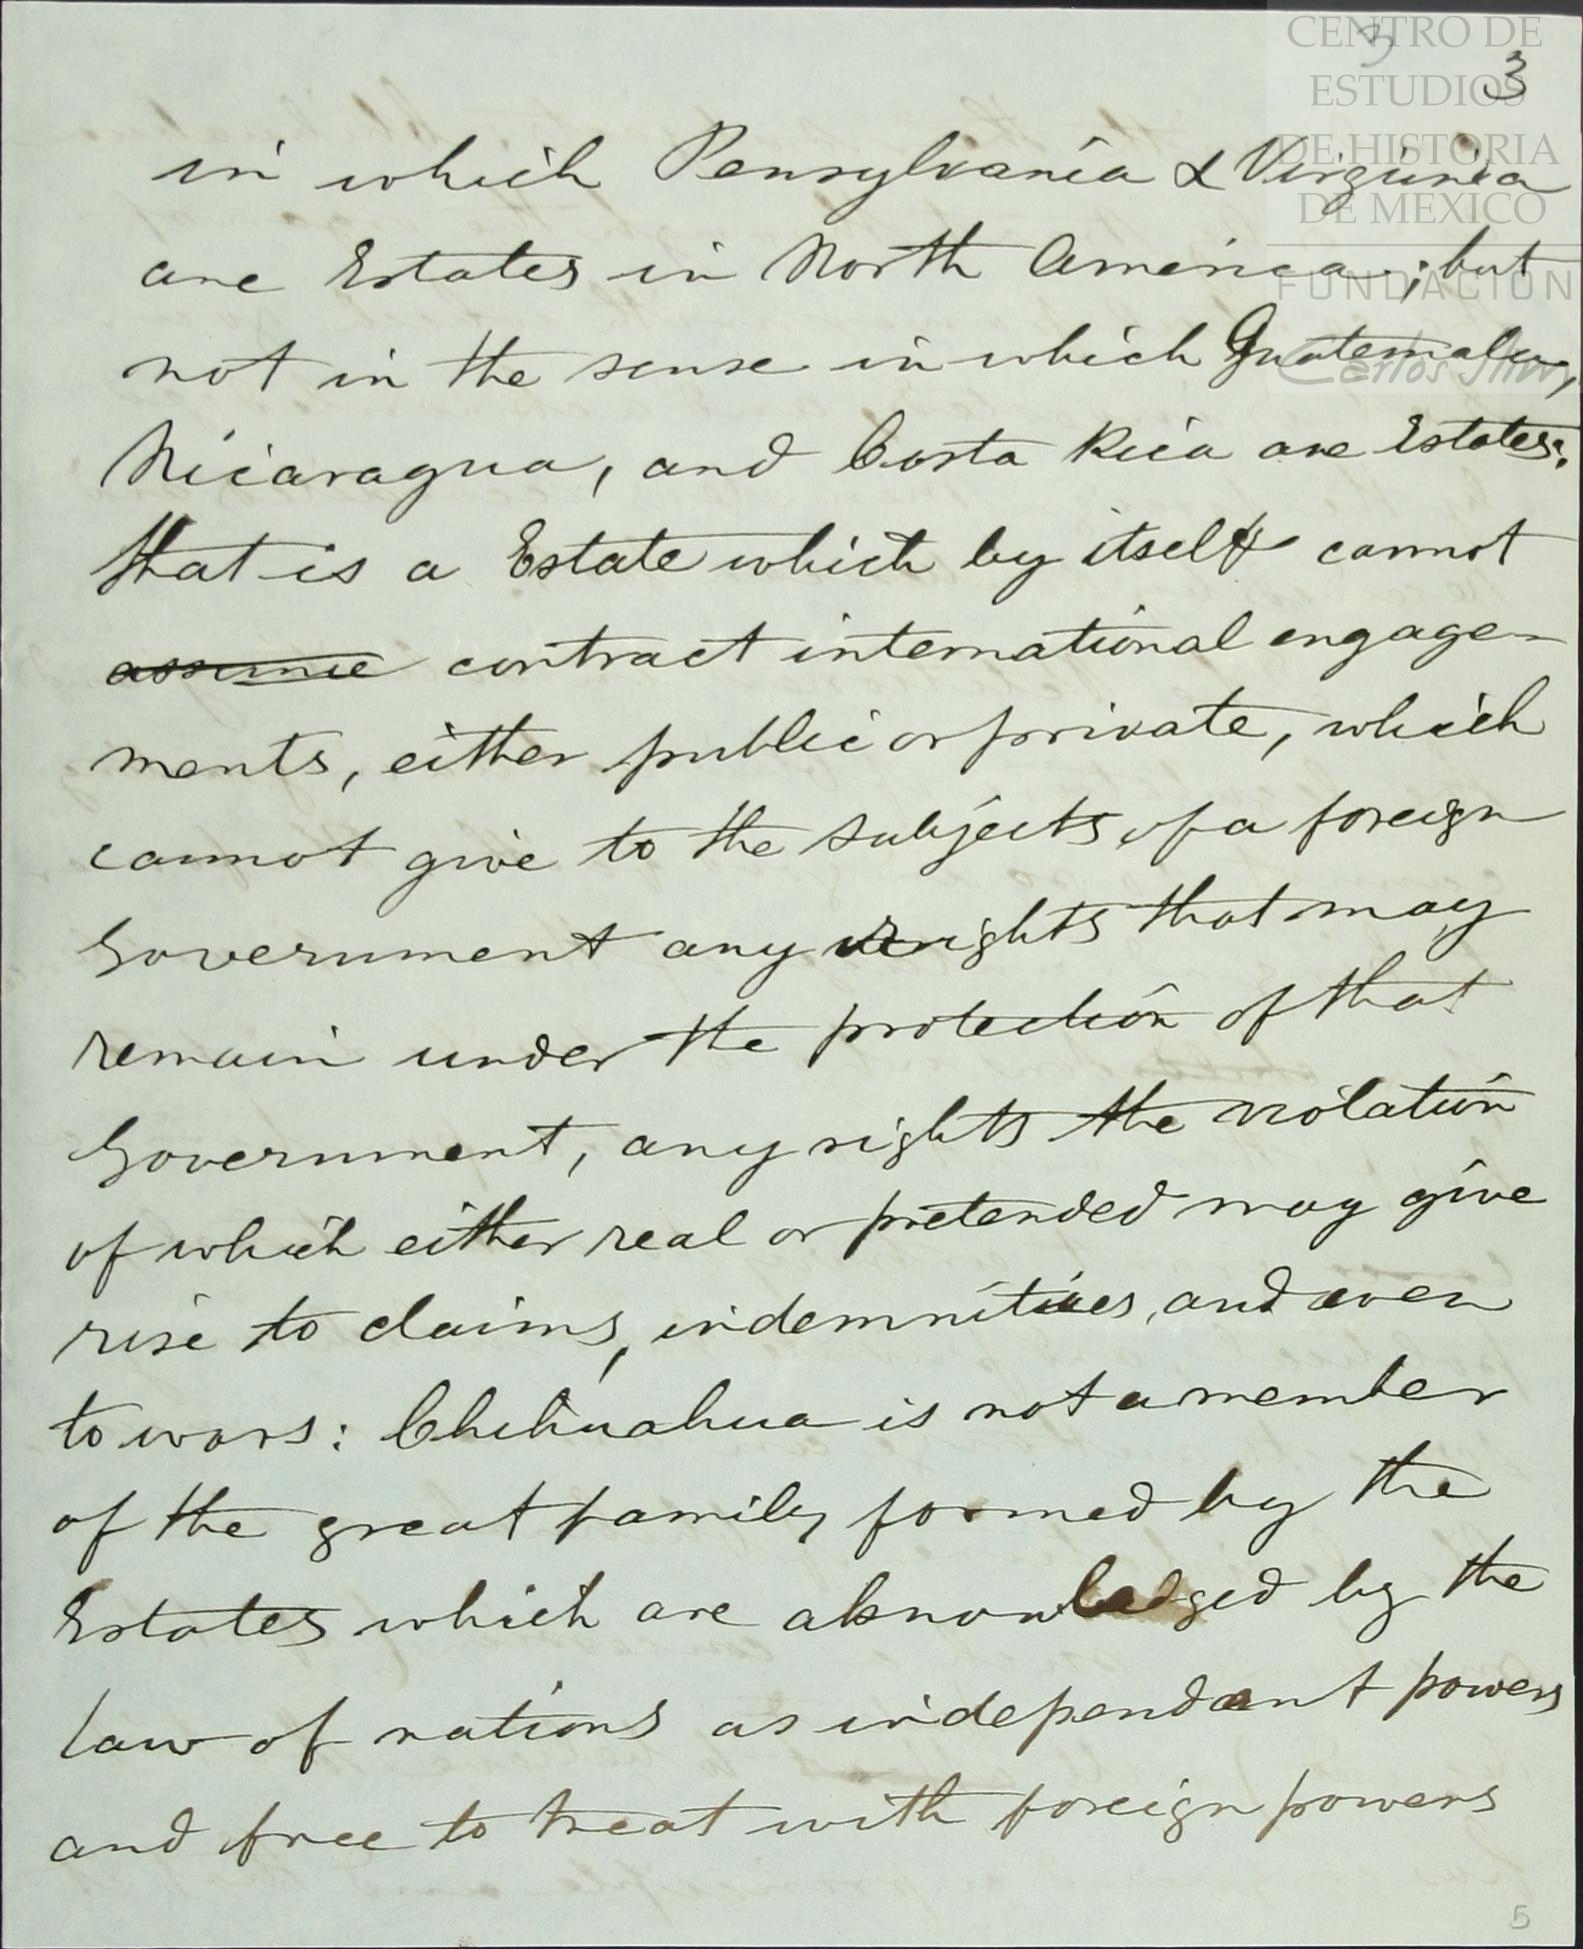 CENTRO DE
ESTUDIOS
DE HISTORIA
DE MEXICO
FUNDACION
Carlos Slim
3
3
in which Pensylvania & Virginia
are Estates in North America; but
not in the sense in which Guatemala,
Nicaragua, and Costa Rica are Estates:
that is a Estate which by itself cannot
assume contract international engage-
ments, either public or private, which
cannot give to the subjects of a foreign
Government any rights that may
remain under the protection of that
Government, any rights the violation
of which either real or pretended may give
rise to claims, indemnities, and even
to wars: Chihuahua is not a member
of the great family formed by the
Estates which are aknowledged by the
law of nations as independant powers
and free to treat with foreign powers
5